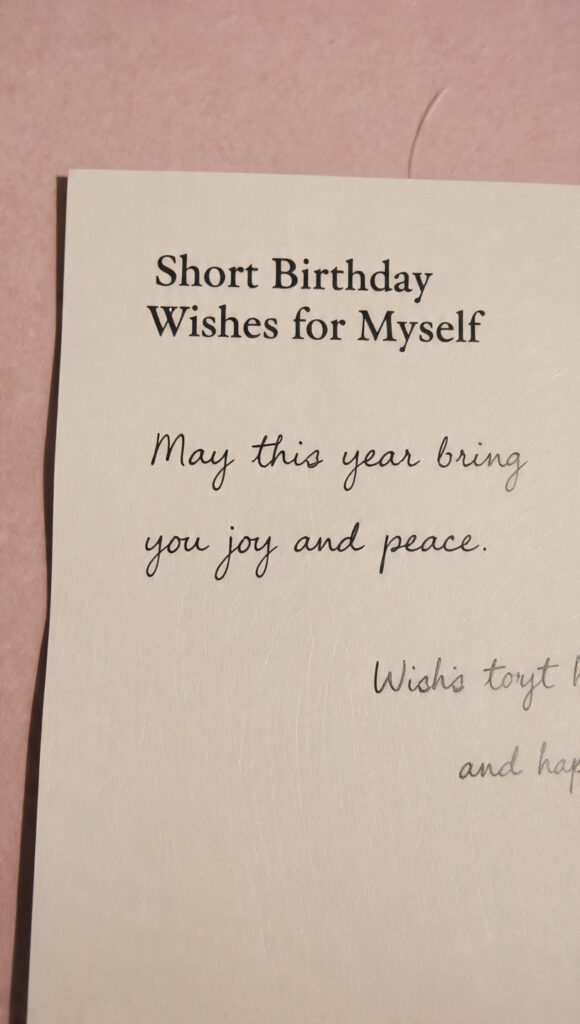 Short Birthday
Wishes for Myself
May this year bring
you joy and peace.
and